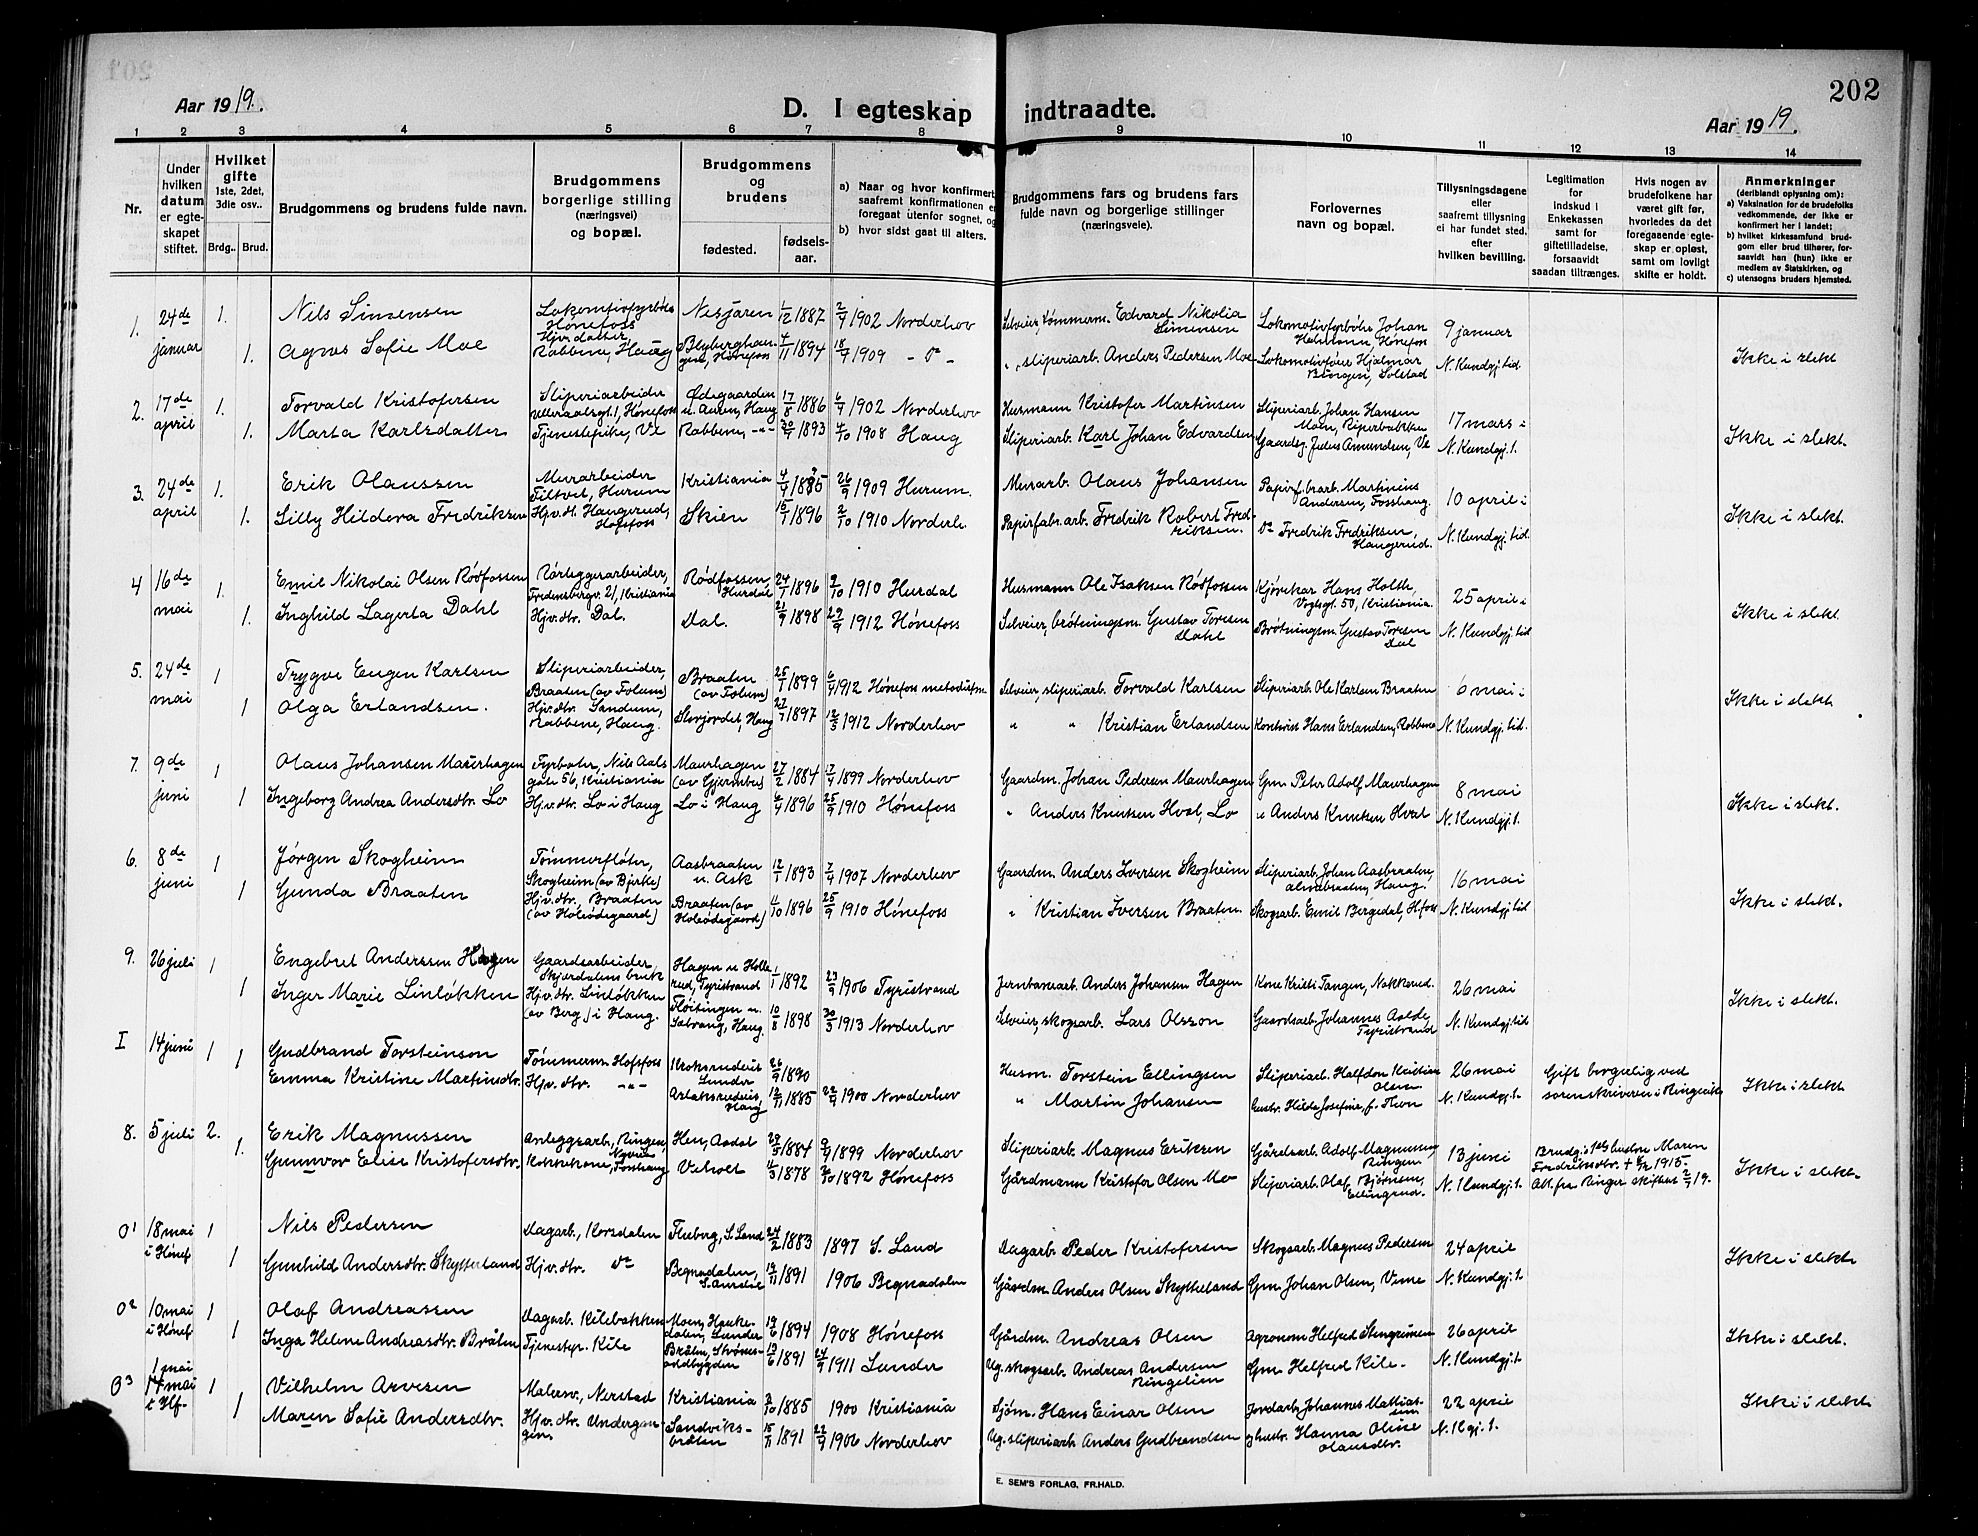 202
Aar 1919.
D. I egteskap indtraadte.
Aar 1919.
1 2 3 4 5 6 7 8 9 10 11 12 13 14
Nr.
Under hvilken datum er egteskapet stiftet.
Hvilket gifte 1ste, 2det, 3die osv..
Brdg.. Brud.
Brudgommens og brudens fulde navn.
Brudgommens borgerlige stilling (næringsvei) og bopæl.
Brudgommens og brudens
fødested. fødsels-aar.
a) Naar og hvor konfirmert, saafremt konfirmationen er foregaat utenfor sognet, og
b) hvor sidst gaat til alters.
Brudgommens fars og brudens fars fulde navn og borgerlige stillinger (næringsveie).
Forlovernes navn og bopæl.
Tillysningsdagene eller saafremt tillysning ei har fundet sted, efter hvilken bevilling.
Legitimation for indskud i Enkekassen samt for giftetilladelse, forsaavidt saadan tiltrænges.
Hvis nogen av brudefolkene har været gift før, hvorledes da det foregaaende egteskap er opløst, samt om lovligt skifte er holdt.
Anmerkninger (deriblandt oplysning om): a) Vaksination for de brudefolks vedkommende, der ikke er konfirmert her i landet; b) hvilket kirkesamfund brudgom eller brud tilhører, forsaavidt han (hun) ikke er medlem av Statskirken, og c) utensogns bruders hjemsted.
1. 24de januar 1. Nils Simensen Lokomotivfyrbøter Hønefoss Nesjaren 1/12 1887 2/9 1902 Norderhov Selveier tømmerm. Edvard Nikolia Simensen Lokomotivfyrbøter Johan Helmann, Hønefoss 9 januar
1. Agnes Sofie Moe Hjv. datter Rabbene, Haug Blyberghaugen, Hønefoss 4/11 1894 18/9 1909 - do - " sliperiarb. Anders Pedersen Moe Lokomotivfører Hjalmar Bungen, Solstad N. Kundgj. tid. Ikke i slekt
2. 17de april 1. Torvald Kristofersen Sliperiarbeider Hønefoss Ødegaarden u. Auren, Haug 17/8 1886 6/9 1902 Norderhov Husmann Kristofer Martinsen Sliperiarb. Johan Hansen Moen, Riperbakken 17 mars i
1. Marta Karlsdatter Tjenestepike, Ve Rabbene, -"- 30/9 1893 4/10 1908 Haug Sliperiarb. Karl Johan Edvardsen Gaardsg. Julius Amundsen, Ve N. Kundgj. t. Ikke i slekt.
3. 24de april 1. Erik Olaussen Murarbeider Tiltvet, Hurum Kristiania 4/9 1885 26/9 1909 Hurum. Murarb. Olaus Johansen Papirf.brarb. Martinius Andersen, Fosshaug. 10 april i
1. Lilly Hildera Fredriksen Hjv.d. Haugerud, Hofsfoss Skien 15/7 1896 2/10 1910 Norderh. Papirfabr.arb. Fredrik Robert Fredriksen. do Fredrik Fredriksen, Haugerud. N. Kundgj. tid. Ikke i slekt.
4 16de mai 1. Emil Nikolai Olsen Rødfossen Rørleggerarbeider, Fredensborgv. 21, Kristiania Rødfossen, Hurdal 24/1 1896 2/10 1910 Hurdal Husmann Ole Isaksen Rødfossen Kjørekar Hans Holth, Vogtsgt. 50, Kristiania. 25 april i
1. Inghild Lagerta Dahl Hjv.dtr. Dal. Dal. 21/9 1898 29/9 1912 Hønefoss Selveier, brøtningsm. Gustav Toresen Dahl Brøtningsm. Gustav Toresen Dal N. Kundgj. tid Ikke i slekt.
5. 24de mai 1 Trygve Eugen Karlsen Sliperiarbeider, Braaten (av Folum) Braaten (av Folum) 25/1 1899 6/4 1912 Hønefoss metodistm. Selveier, sliperiarb. Torvald Karlsen Sliperiarb. Ole Karlsen Braaten 6 mai i
1 Olga Erlandsen. Hjv.dtr. Sandum, Rabbene, Haug. Storjordet, Haug 27/7 1897 12/5 1912 Norderhov " " Kristian Erlandsen Kontorist Hans Erlandsen, Rabbene N. Kundgj. tid. Ikke i slekt.
7. 9de juni 1 Olaus Johansen Maurhagen Fyrbøter, Nils Aals gate 56, Kristiania Maurhagen (av Gjermbo) 27/2 1884 17/9 1899 Norderhov Gaardm. Johan Pedersen Maurhagen Gm. Peter Adolf Maurhagen 8 mai
1 Ingeborg Andrea Andersdtr. Lo Hjv.dtr. Lo i Haug Lo i Haug 6/9 1896 25/9 1910 Hønefoss " Anders Knutsen Hval, Lo " Anders Knutsen Hval N. Kundgj. t. Ikke i slekt.
6. 8de juni 1 Jørgen Skogheim Tømmerfløter, Skogheim (av Bjerke) Aasbraaten u. Ask 12/1 1893 7/9 1907 Norderhov Gaardm. Anders Iversen Skogheim Sliperiarb. Johan Aasbraaten, Almebraaten, Haug. 16 mai
1 Gunda Braaten Hjv.dtr. Braaten (av Holeødegaard) Braaten (av Holeødsgaard) 4/10 1896 25/9 1910 Hønefoss " Kristian Iversen Braaten. Skogsarb. Emil Bergedal, Hfoss N. Kundgj. tid Ikke i slekt.
9. 26 juli 1 Engebret Andersen Hagen Gaardsarbeider, Skjærdalens bruk Hagen u Hollerud, Tyristrand 1/1 1892 23/9 1906 Tyristrand Jernbanearb. Anders Johansen Hagen Kone Kristi Tangen, Nakkerud. 26 mai
1 Inger Marie Linløkken Hjv.dtr. Linløkken (av Berg) i Haug. Fløitingen u. Solvang, Haug. 10/8 1898 30/3 1913 Norderhov Selveier, skogsarb. Lars Olsson Gaardsarb. Johannes Aalde, Tyristrand N. Kundgj. tid Ikke i slekt.
I 14 juni 1 Gudbrand Torsteinson Tømmerm. Hofsfoss Kroksrudeie Lunder 26/9 1890 Husm. Torstein Ellingsen Sliperiarb. Halfdan Kristian Olsen 26 mai Gift borgerlig ved sorenskriveren i Ringerike
1 Emma Kristine Martinsdtr. Hjv.dtr. -"- Haug 12/11 1885 22/9 1900 Norderhov " Martin Johansen Hustr. Hilda Josefine, f. Thon N. Kundgj. t. Ikke i slekt
8. 5 juli 2. Erik Magnussen Anleggsarb., Ringen, Nymoen Hen, Aadal 28/5 1884 9/9 1899 Norderhov Sliperiarb. Magnus Eriksen Gårdsarb. Adolf Magnussen, Ringen 13 juni Brudg.s 1ste hustru Maren Fredriksdtr. + 1915.
1. Gunvor Elise Kristofersdtr. Kokkekone, Fosshaug Veholt 4/3 1878 30/10 1892 Hønefoss Gårdmann Kristofer Olsen Mo Sliperiarb. Olaf Bjørnsen, Ellingrud. N. Kundgj. t. Att. fra Ringer. skifteret 2/7 19. Ikke i slekt.
01 18 mai i Hønef 1 Nils Pedersen Dagarb., Korsdalen Fluberg, S. Land 24/2 1883 1897 S. Land Dagarb. Peder Kristofersen Skogsarb. Magnus Pedersen 24 april
1 Gunhild Andersdtr. Skytterland Hjv.dtr. do Begnadalen, S. Aurdal 19/11 1891 1906 Begnadalen Gårdm. Anders Olsen Skytteland Gm. Johan Olsen, Veme N. Kundgj. t. Ikke i slekt.
02 10 mai i Hønef 1 Olaf Andreassen Dagarb. Kilebakken Moen, Haukedalen, Lunder 19/6 1894 1908 Hønefoss Gårdm. Andreas Olsen Agronom Helfred Stengrimsen 26 april
1 Inga Helene Andreasdtr. Bråten Tjenestepr. Kile Bråten, Strømsoddbygden 13/6 1891 24/9 1911 Lunder Ug. skogsarb. Andreas Andersen Ringelien Gm. Helfred Kile. N. Kundgj. t. Ikke i slekt.
03 1 mai 17 mai i Hf. 1 Vilhelm Arvesen Malersv., Nerstad Kristiania 3/10 1885 1900 Kristiania Sjøm. Hans Einar Olsen Jordarb. Johannes Mathiassen 22 april
1 Maren Sofie Andersdtr. Hjv.dtr. Undergangen Sandviksbråten 15/11 1891 23/9 1906 Norderhov Ug. sliperiarb. Anders Gudbrandsen og hustr. Hanna Oline Olausdtr. N. Kgj. t. Ikke i slekt.
E. SEM'S FORLAG, FR.HALD.